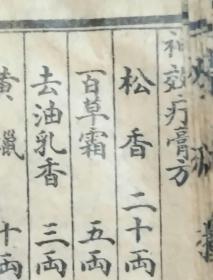 神效疔膏方
松香 二十両
百草霜 五両
去油乳香 三両
黄蠟 十両